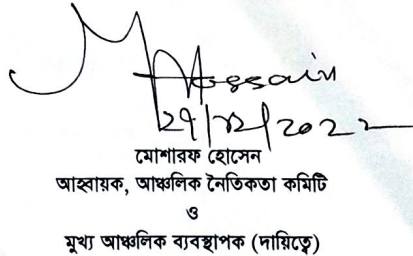 M Hossain
২৭/১২/২০২২
মোশারফ হোসেন
আহ্বায়ক, আঞ্চলিক নৈতিকতা কমিটি
ও
মুখ্য আঞ্চলিক ব্যবস্থাপক (দায়িত্বে)